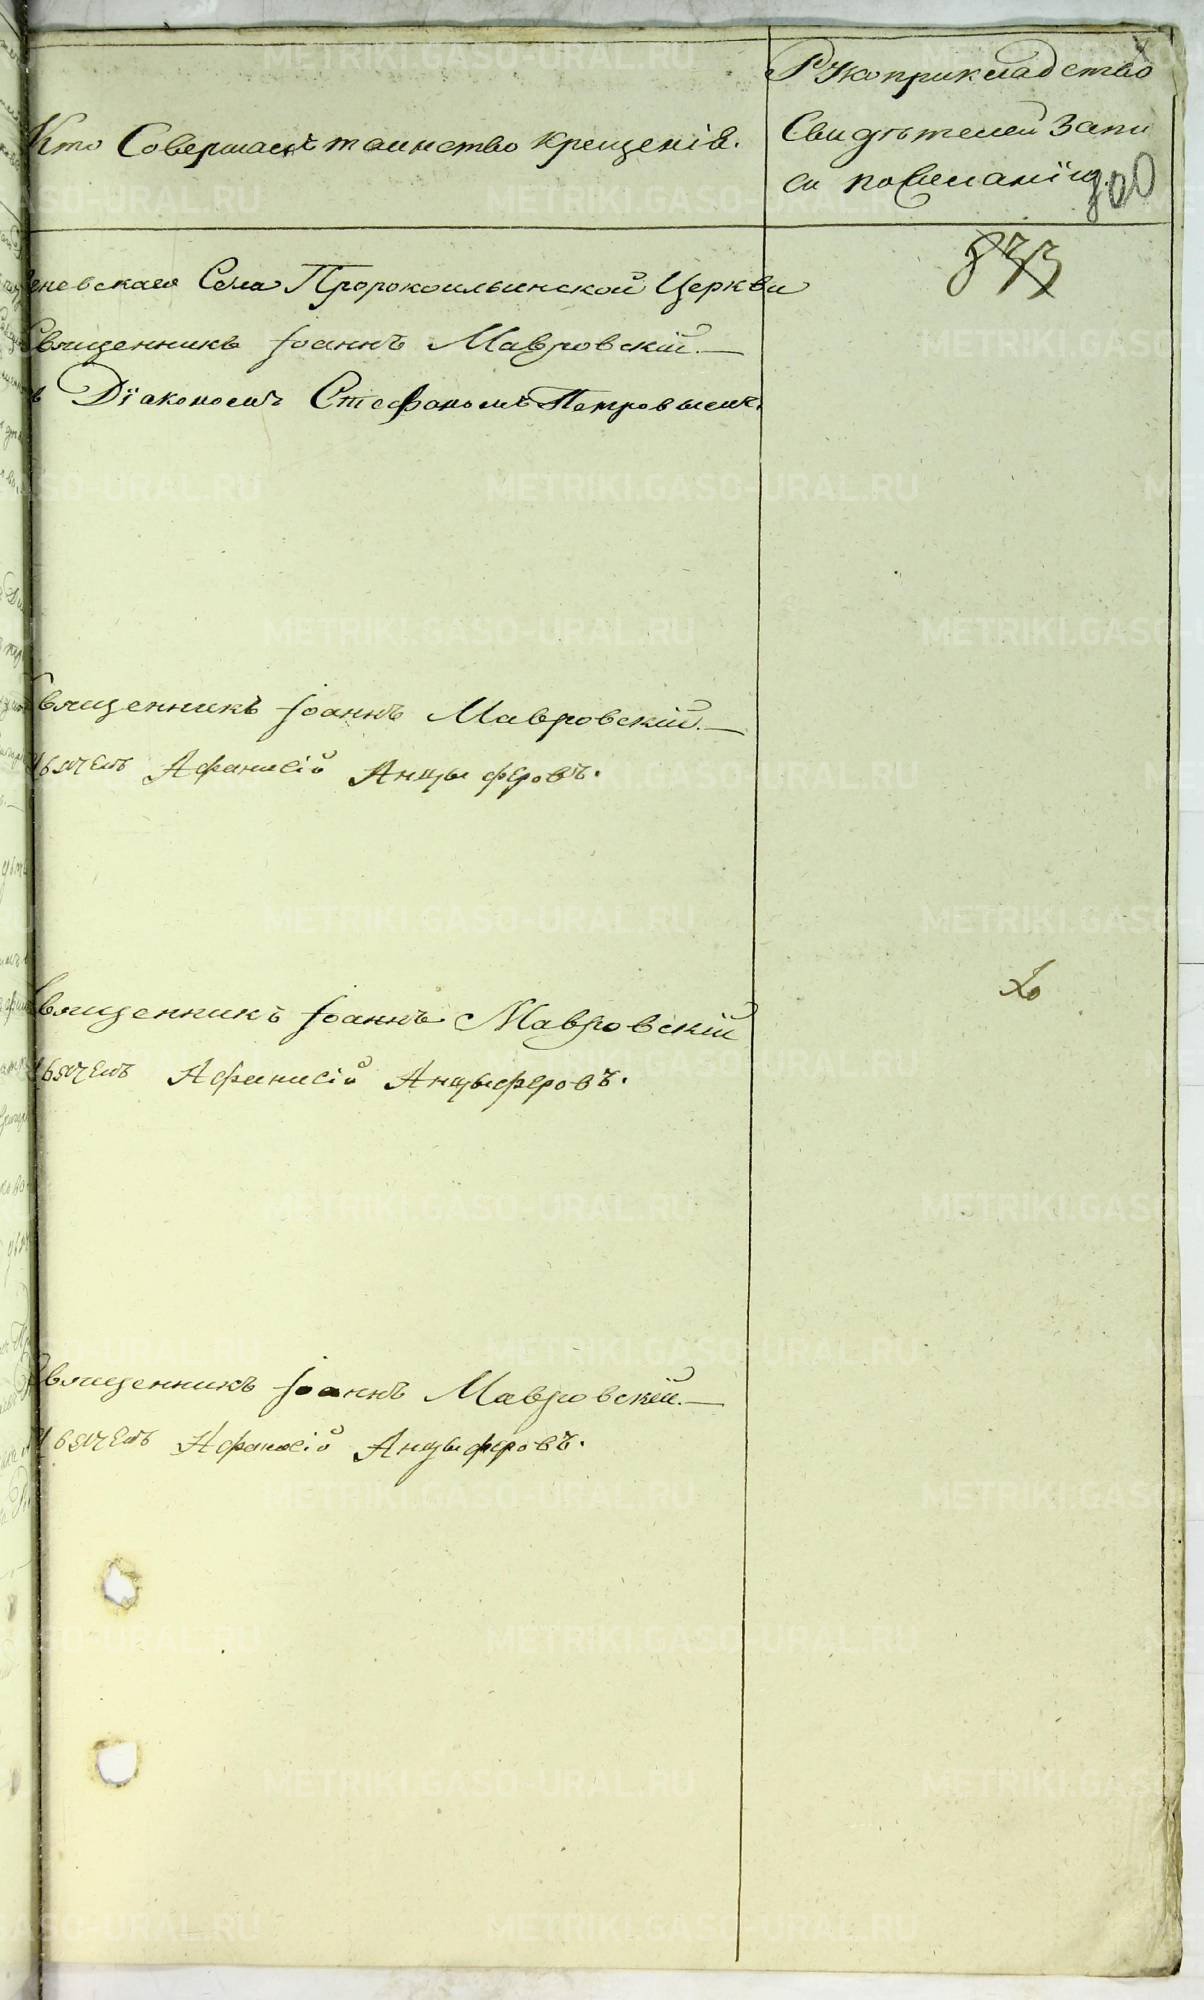 Кто Совершалъ таинство крещенія.
Рукоприкладство
Свидѣтелей Запи
си пожеланію.
800
873
Села Пророкоильинской Церкви
Священникъ Іоаннъ Мавровскій.
Дїакономъ Стефаномъ Петровымъ.
Священникъ Іоаннъ Мавровскій.
Афанасій Анцыферовъ.
Священникъ Іоаннъ Мавровскій
Афанасій Анцыферовъ.
Священникъ Іоаннъ Мавровскій.
Афанасій Анцыферовъ.
METRIKI.GASO-URAL.RU